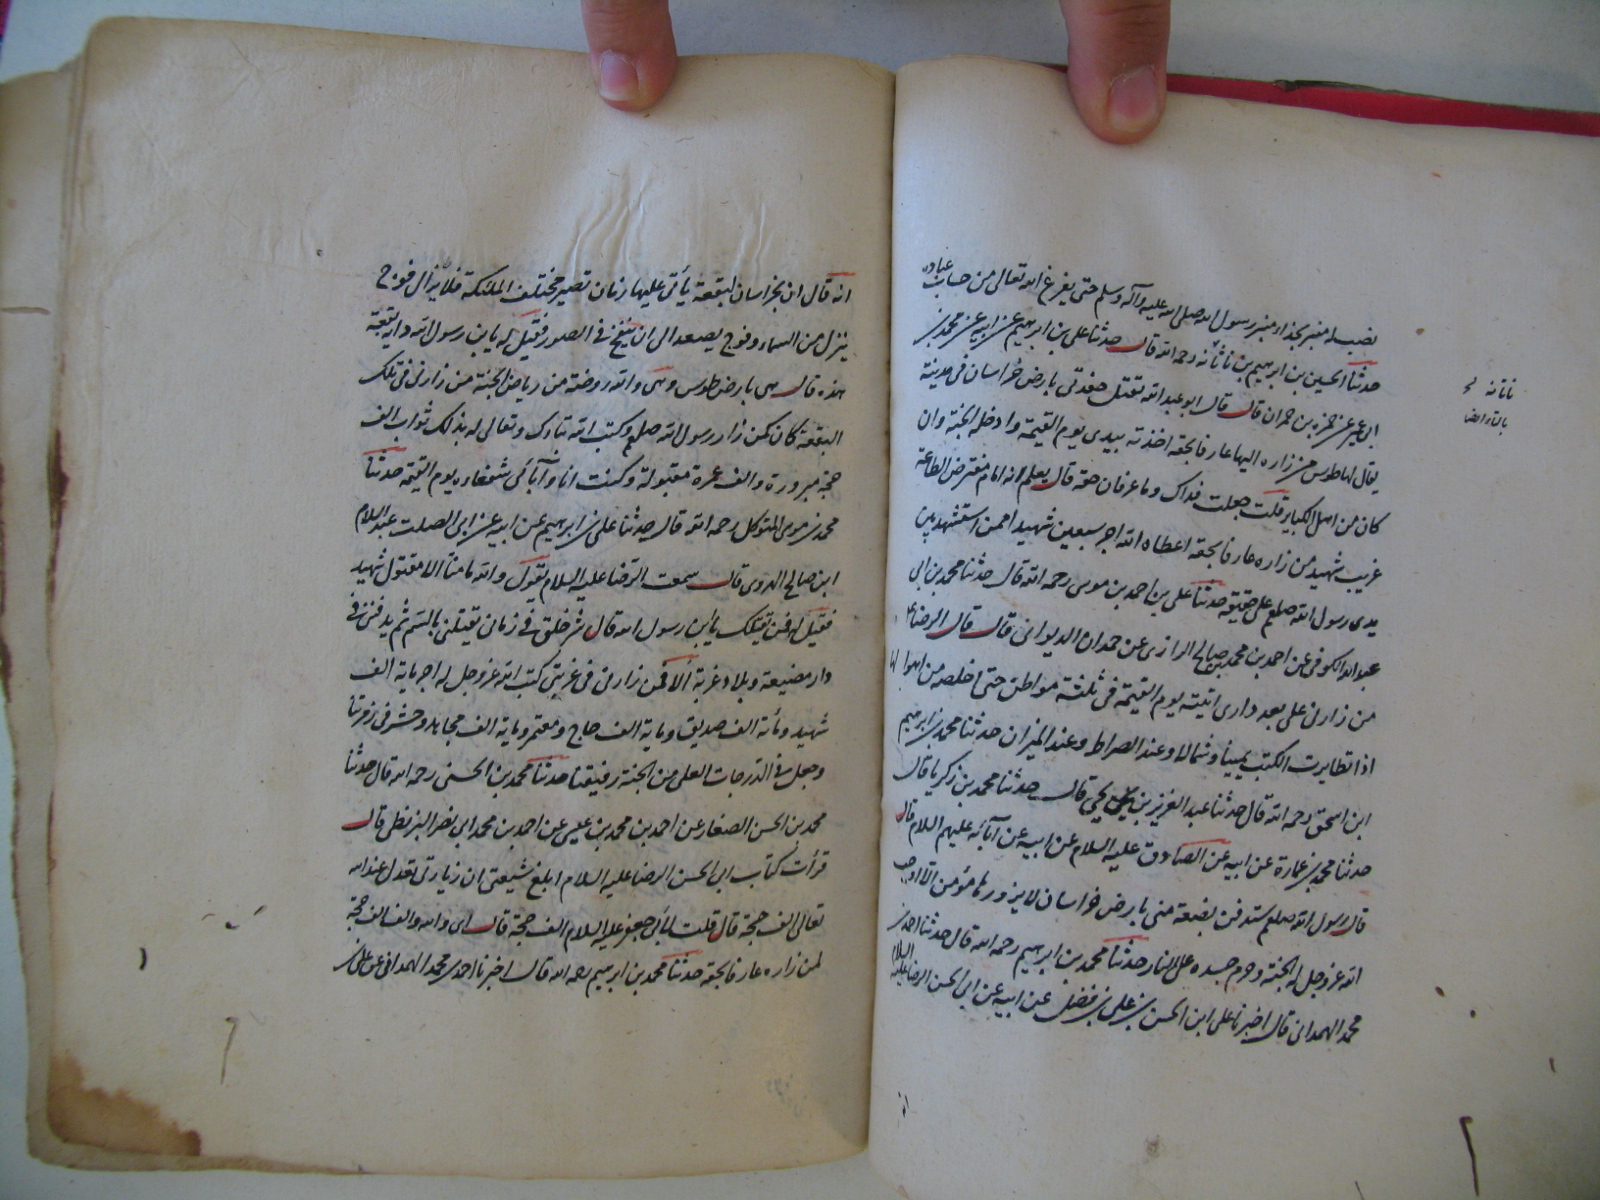 نصب له منبر بحذاء منبر رسول الله صلى الله عليه وآله وسلم حتى يفرغ الله تعالى من حساب عباده
حدثنا الحسين بن ابرهيم بن ناتانه رحمه الله قال حدثنا على بن ابرهيم عن ابيه عن محمد بن
ابى عمير عن حمزه بن حمران قال قال ابو عبد الله تقتل حفدتى بارض خراسان فى مدينة
يقال لها طوس من زاره اليها عارفا بحقه اخذته بيدى يوم القيمة وادخله الجنة وان
كان من اهل الكباير قلت جعلت فداك وما عرفان حقه قال يعلم انه امام مفترض الطاعة
غريب شهيد من زاره عارفا بحقه اعطاه الله اجر سبعين شهيدا ممن استشهد بين
يدى رسول الله صلعم على حقيقة حدثنا على بن احمد بن موسى رحمه الله قال حدثنا محمد بن ابى
عبد الله الكوفى عن احمد بن محمد بن صالح الرازى عن حمدان الديوانى قال قال الرضا ع
من زارنى على بعد دارى اتيته يوم القيمة فى ثلثة مواطن حتى اخلصه من اهوالها
اذا تطايرت الكتب يمينا وشمالا وعند الصراط وعند الميزان حدثنا محمد بن ابرهيم
ابن اسحق رحمه الله قال حدثنا عبد العزيز بن يحيى قال حدثنا محمد بن زكريا قال
حدثنا محمد بن عمارة عن ابيه عن الصادق عليه السلام عن ابيه عن آبائه عليهم السلام قال
قال رسول الله صلعم ستدفن بضعة منى بارض خراسان لا يزورها مؤمن الا اوجب
الله عز وجل له الجنة وحرم جسده على النار حدثنا محمد بن ابرهيم رحمه الله قال حدثنا احمد بن
محمد الهمدانى قال اخبرنا على ابن الحسن بن على بن فضل عن ابيه عن ابى الحسن الرضا عليه السلام
ناتانه
بالتاء ايضا
انه
انه قال ان بخراسان لبقعة يأتى عليها زمان تصير مختلف الملئكة فلا يزال فوج
ينزل من السماء وفوج يصعد الى ان ينفخ فى الصور فقيل له يا بن رسول الله واية بقعة
هذه قال هى بارض طوس وهى والله روضة من رياض الجنة من زارنى فى تلك
البقعة كان كمن زار رسول الله صلعم وكتب الله تبارك وتعالى له بذلك ثواب الف
حجة مبرورة والف عمرة مقبولة وكنت انا وآبائى شفعاءه يوم القيمة حدثنا
محمد بن موسى المتوكل رحمه الله قال حدثنا على بن ابرهيم عن ابيه عن ابى الصلت عبد السلام
ابن صالح الهروى قال سمعت الرضا عليه السلام يقول والله ما منا الا مقتول شهيد
فقيل له فمن يقتلك يا بن رسول الله قال شر خلق فى زمانى يقتلنى بالسم ثم يدفننى فى
دار مضيعة وبلاد غربة ألا فمن زارنى فى غربتى كتب الله عز وجل له اجر ماية الف
شهيد ومائة الف صديق وماية الف حاج ومعتمر وماية الف مجاهد وحشر فى زمرتنا
وجعل فى الدرجات العلى من الجنة رفيقنا حدثنا محمد بن الحسن رحمه الله قال حدثنا
محمد بن الحسن الصفار عن احمد بن محمد بن عيسى عن احمد بن محمد ابى نصر البزنطى قال
قرأت كتاب ابى الحسن الرضا عليه السلام ابلغ شيعتى ان زيارتى تعدل عند الله
تعالى الف حجة قال قلت لابى جعفر عليه السلام الف حجة قال اى والله والف الف حجة
لمن زاره عارفا بحقه حدثنا محمد بن ابرهيم رحمه الله قال اخبرنا احمد بن محمد الهمدانى عن على بن